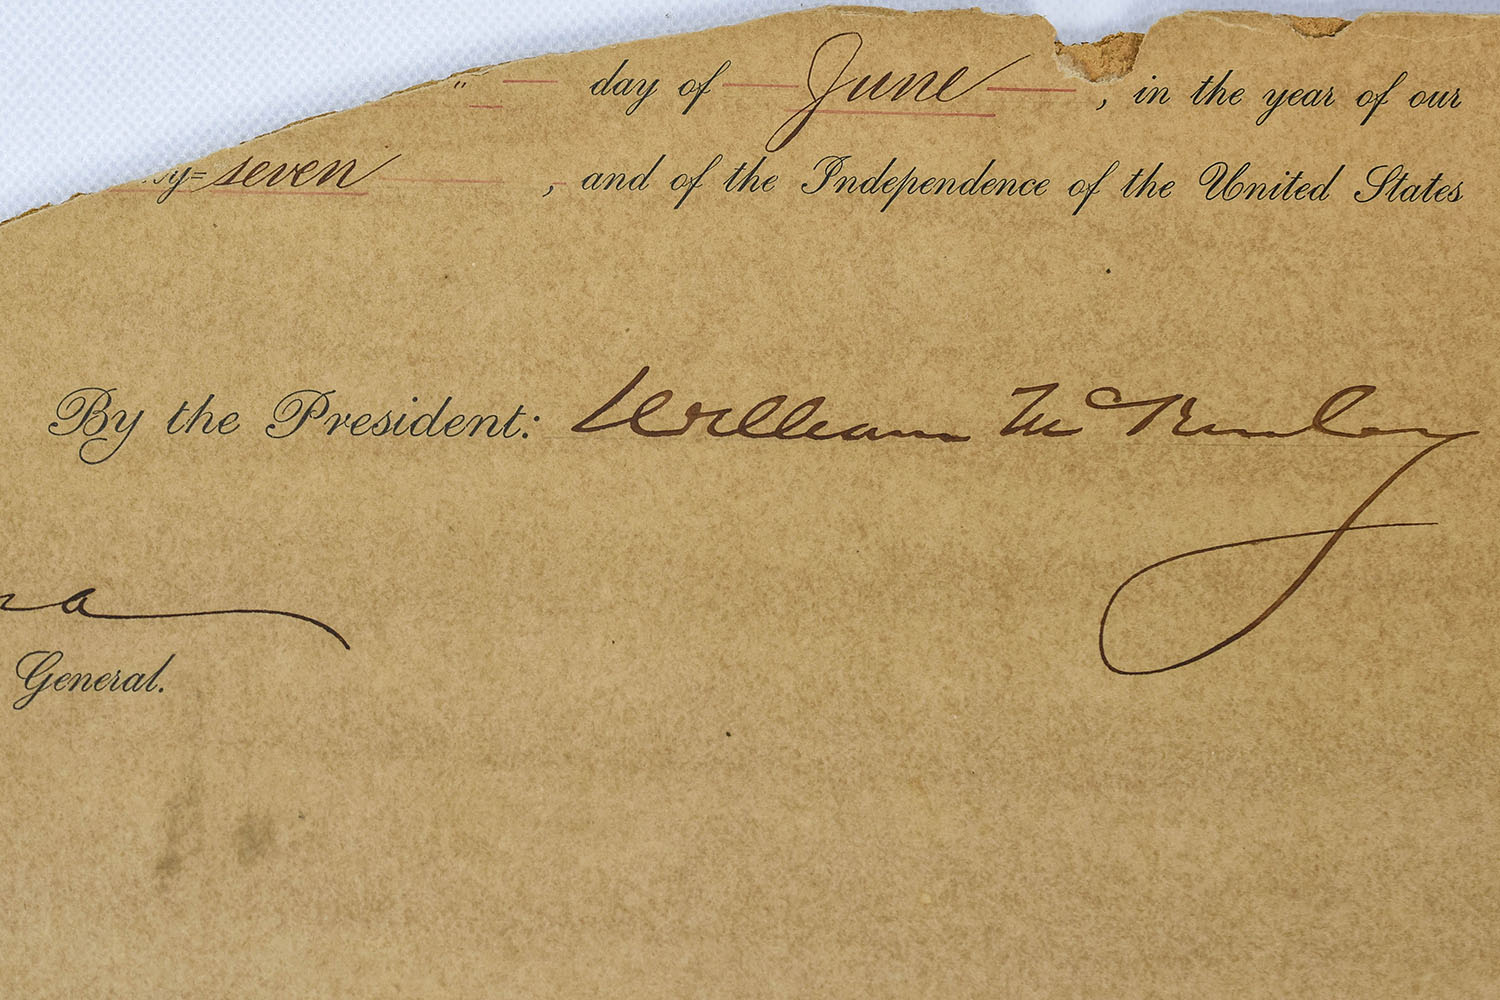 " day of June, in the year of our
y=seven, and of the Independence of the United States
By the President: William McKinley
na
General.